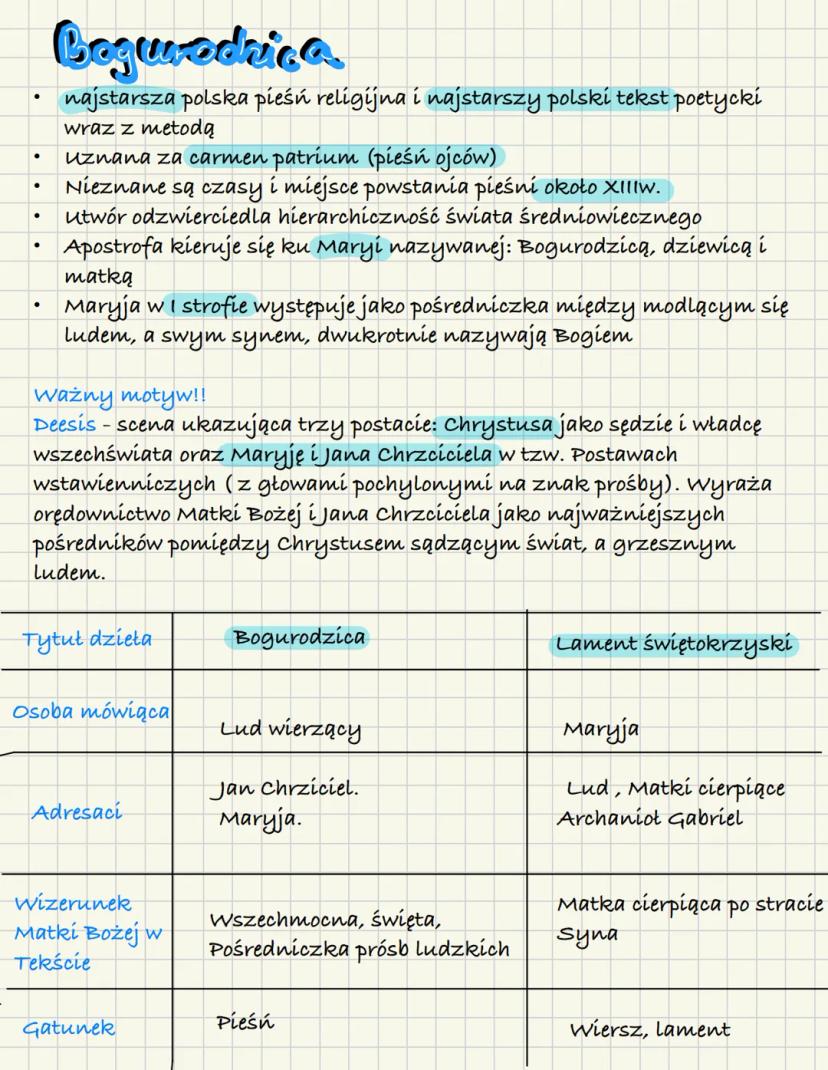 Bogurodzica
• najstarsza polska pieśń religijna i najstarszy polski tekst poetycki
wraz z metodą
• Uznana za carmen patrium (pieśń ojców)
• Nieznane są czasy i miejsce powstania pieśni około XIIIw.
• Utwór odzwierciedla hierarchiczność świata średniowiecznego
• Apostrofa kieruje się ku Maryi nazywanej: Bogurodzicą, dziewicą i
matką
• Maryja w I strofie występuje jako pośredniczka między modlącym się
ludem, a swym synem, dwukrotnie nazywają Bogiem
Ważny motyw!!
Deesis - scena ukazująca trzy postacie: Chrystusa jako sędzie i władcę
wszechświata oraz Maryję i Jana Chrzciciela w tzw. Postawach
wstawienniczych ( z głowami pochylonymi na znak prośby). Wyraża
orędownictwo Matki Bożej i Jana Chrzciciela jako najważniejszych
pośredników pomiędzy Chrystusem sądzącym świat, a grzesznym
ludem.
Tytuł dzieła Bogurodzica Lament świętokrzyski
Osoba mówiąca Lud wierzący Maryja
Adresaci
Jan Chrziciel.
Maryja.
Lud , Matki cierpiące
Archanioł Gabriel
Wizerunek
Matki Bożej w
Tekście
Wszechmocna, święta,
Pośredniczka próśb ludzkich
Matka cierpiąca po stracie
Syna
Gatunek Pieśń Wiersz, lament